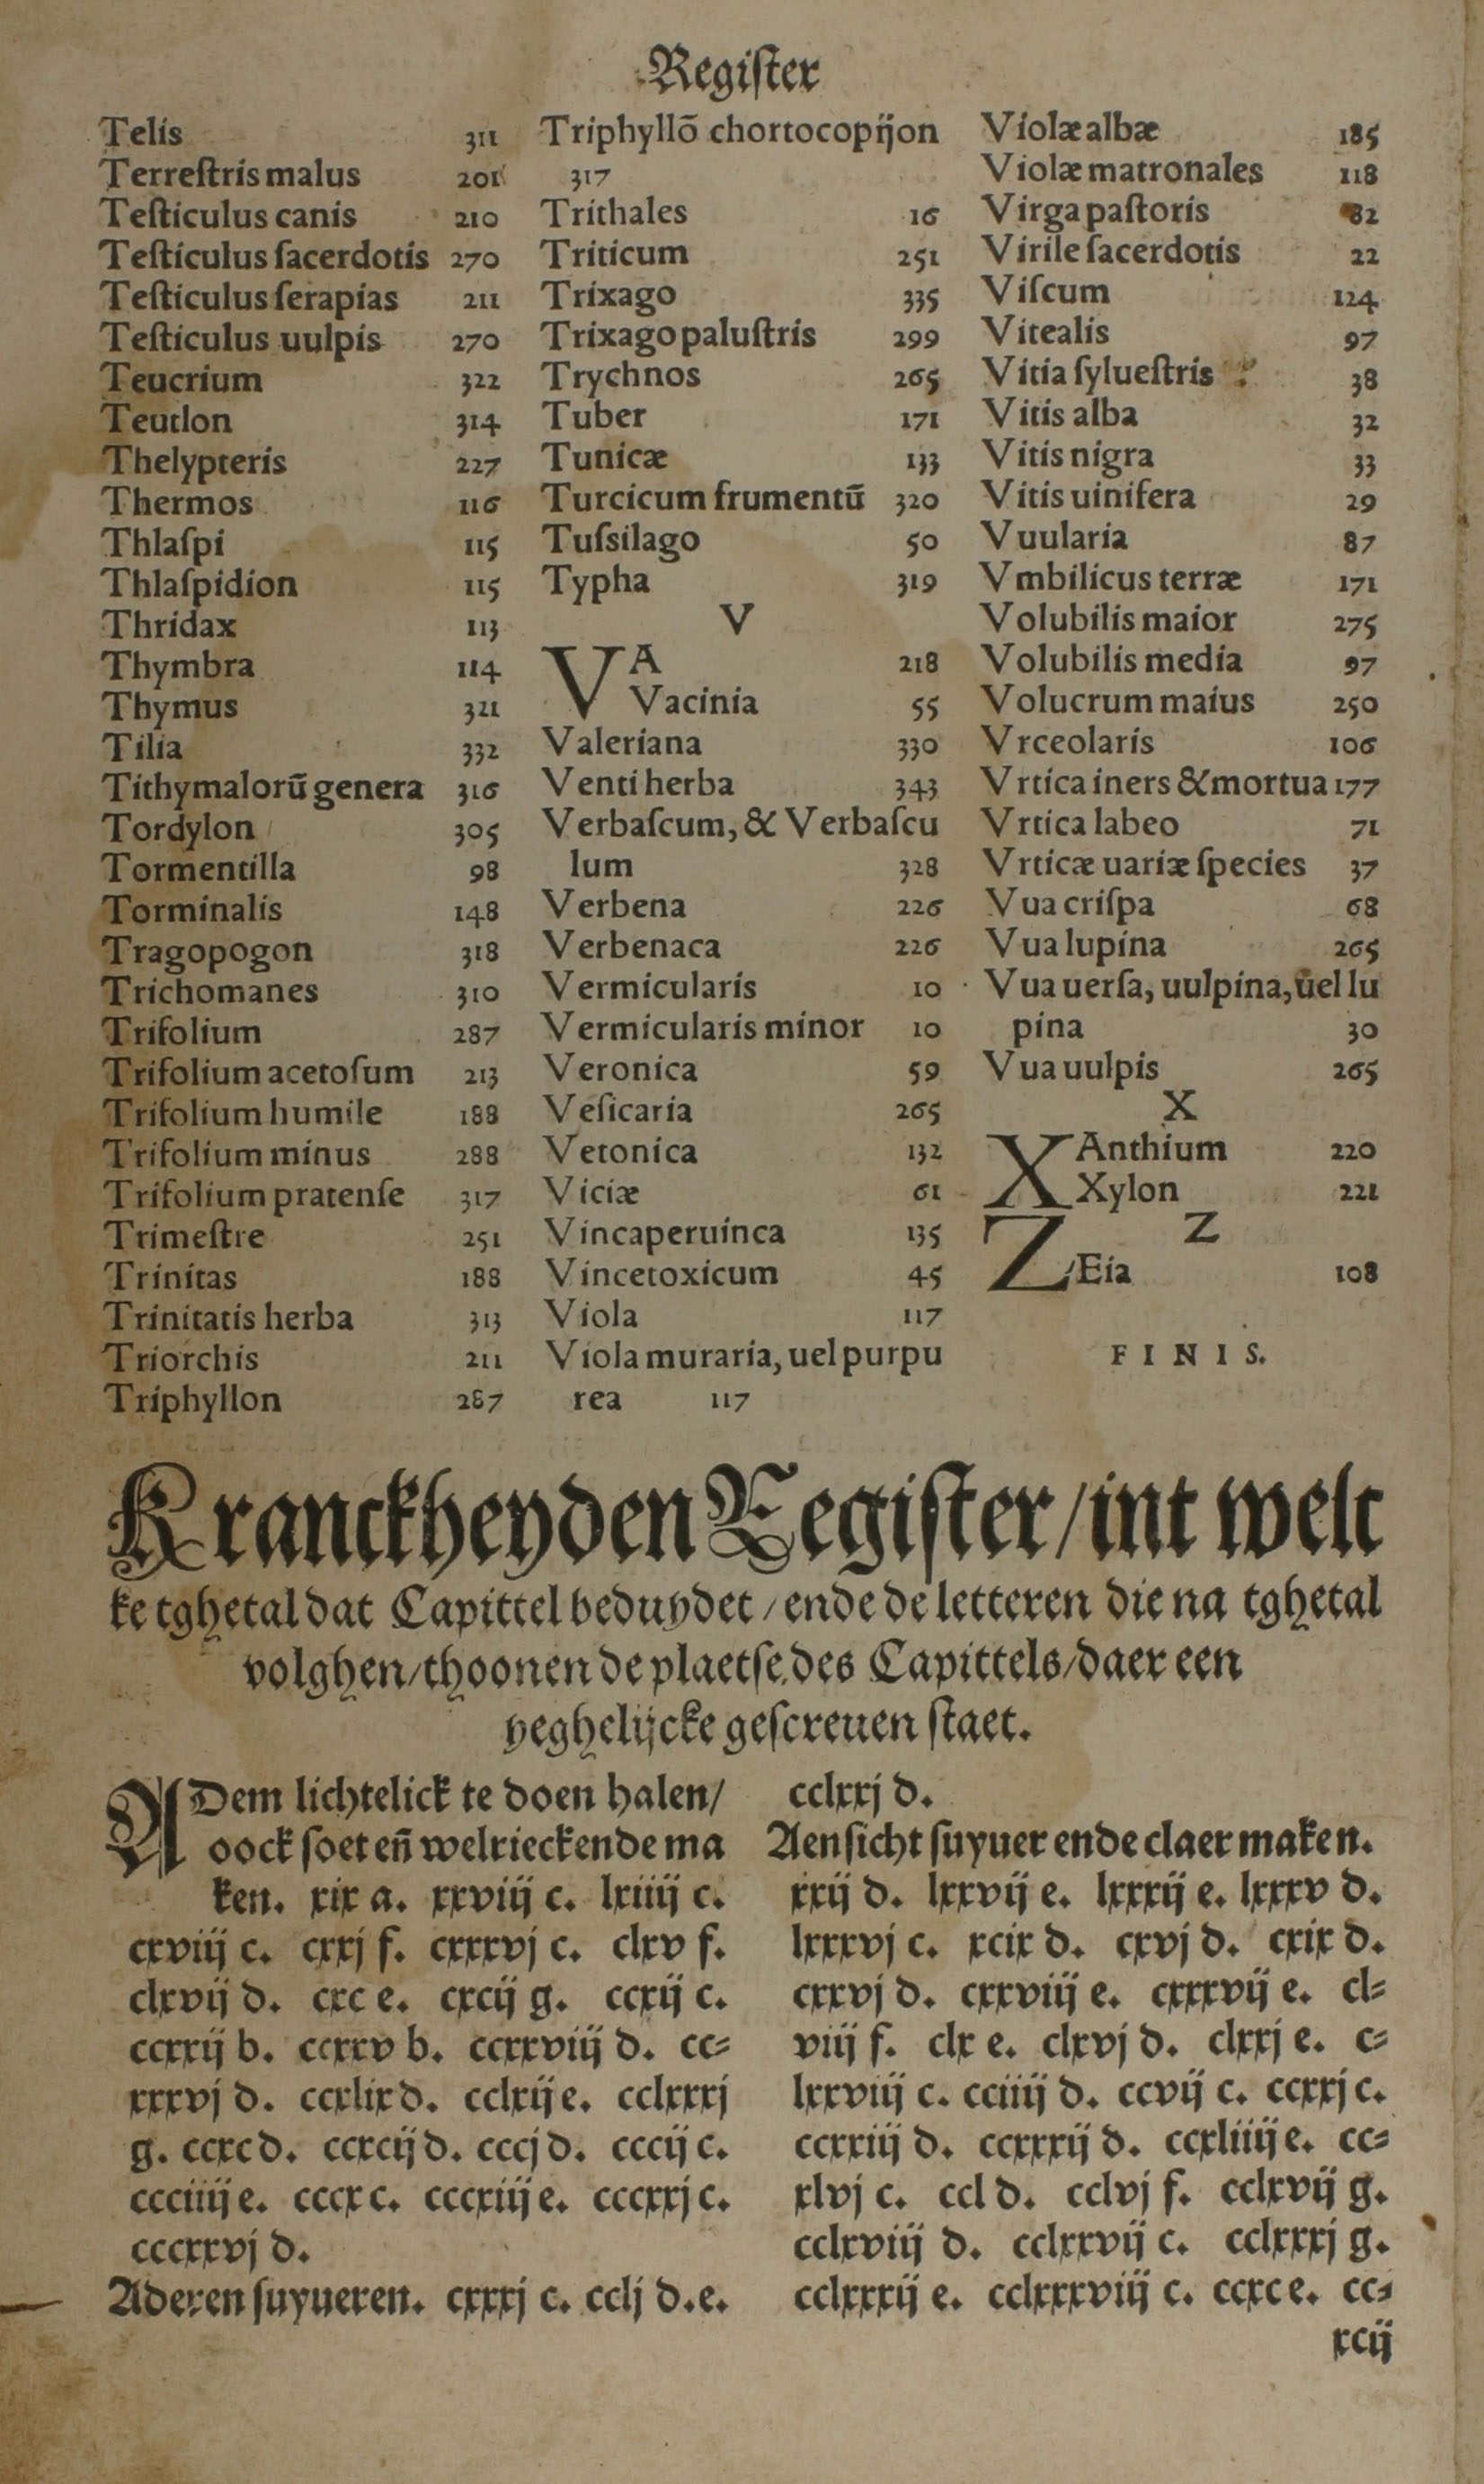 Regiſter
Telis 311
Terreſtris malus 201
Teſticulus canis 210
Teſticulus ſacerdotis 270
Teſticulus ſerapias 211
Teſticulus uulpis 270
Teucrium 322
Teutlon 314
Thelypteris 227
Thermos 116
Thlaſpi 115
Thlaſpidion 115
Thridax 113
Thymbra 114
Thymus 321
Tilia 332
Tithymalorū genera 316
Tordylon 305
Tormentilla 98
Torminalis 148
Tragopogon 318
Trichomanes 310
Trifolium 287
Trifolium acetoſum 213
Trifolium humile 188
Trifolium minus 288
Trifolium pratenſe 317
Trimeſtre 251
Trinitas 188
Trinitatis herba 313
Triorchis 211
Triphyllon 287
Triphyllō chortocopijon
317
Trithales 16
Triticum 251
Trixago 335
Trixago paluſtris 299
Trychnos 265
Tuber 171
Tunicæ 133
Turcicum frumentū 320
Tuſsilago 50
Typha 319
V
VA 218
Vacinia 55
Valeriana 330
Venti herba 343
Verbaſcum, & Verbaſcu
lum 328
Verbena 226
Verbenaca 226
Vermicularis 10
Vermicularis minor 10
Veronica 59
Veſicaria 265
Vetonica 132
Viciæ 61
Vincaperuinca 135
Vincetoxicum 45
Viola 117
Viola muraria, uel purpu
rea 117
Violæ albæ 185
Violæ matronales 118
Virga paſtoris 82
Virile ſacerdotis 22
Viſcum 124
Vitealis 97
Vitia ſylueſtris 38
Vitis alba 32
Vitis nigra 33
Vitis uinifera 29
Vuularia 87
Vmbilicus terræ 171
Volubilis maior 275
Volubilis media 97
Volucrum maius 250
Vrceolaris 106
Vrtica iners & mortua 177
Vrtica labeo 71
Vrticæ uariæ ſpecies 37
Vua criſpa 68
Vua lupina 265
Vua uerſa, uulpina, uel lu
pina 30
Vua uulpis 265
X
XAnthium 220
Xylon 221
Z
ZEia 108
FINIS.
Kranckheyden Regiſter/int welc
ke tghetal dat Capittel beduydet/ende de letteren die na tghetal
volghen/thoonen de plaetſe des Capittels/daer een
yeghelijcke geſcreuen ſtaet.
ADem lichtelick te doen halen/
oock ſoet eñ welrieckende ma
ken. xix a. xxviij c. lxiiij c.
cxviij c. cxxj f. cxxxvj c. clxv f.
clxvij d. cxc e. cxcij g. ccxij c.
ccxxij b. ccxxv b. ccxxviij d. cc⸗
xxxvj d. ccxlix d. cclxij e. cclxxxj
g. ccxc d. ccxcij d. cccj d. cccij c.
ccciiij e. cccx c. cccxiij e. cccxxj c.
cccxxvj d.
Aderen ſuyueren. cxxxj c. cclj d.e.
cclxxj d.
Aenſicht ſuyuer ende claer maken.
xxij d. lxxvij e. lxxxij e. lxxxv d.
lxxxvj c. xcix d. cxvj d. cxix d.
cxxvj d. cxxviij e. cxxxvij e. cl⸗
viij f. clx e. clxvj d. clxxj e. c⸗
lxxviij c. cciiij d. ccvij c. ccxxj c.
ccxxiij d. ccxxxij d. ccxliiij e. cc⸗
xlvj c. ccl d. cclvj f. cclxvij g.
cclxviij d. cclxxvij c. cclxxxj g.
cclxxxij e. cclxxxviij c. ccxc e. cc⸗
xcij